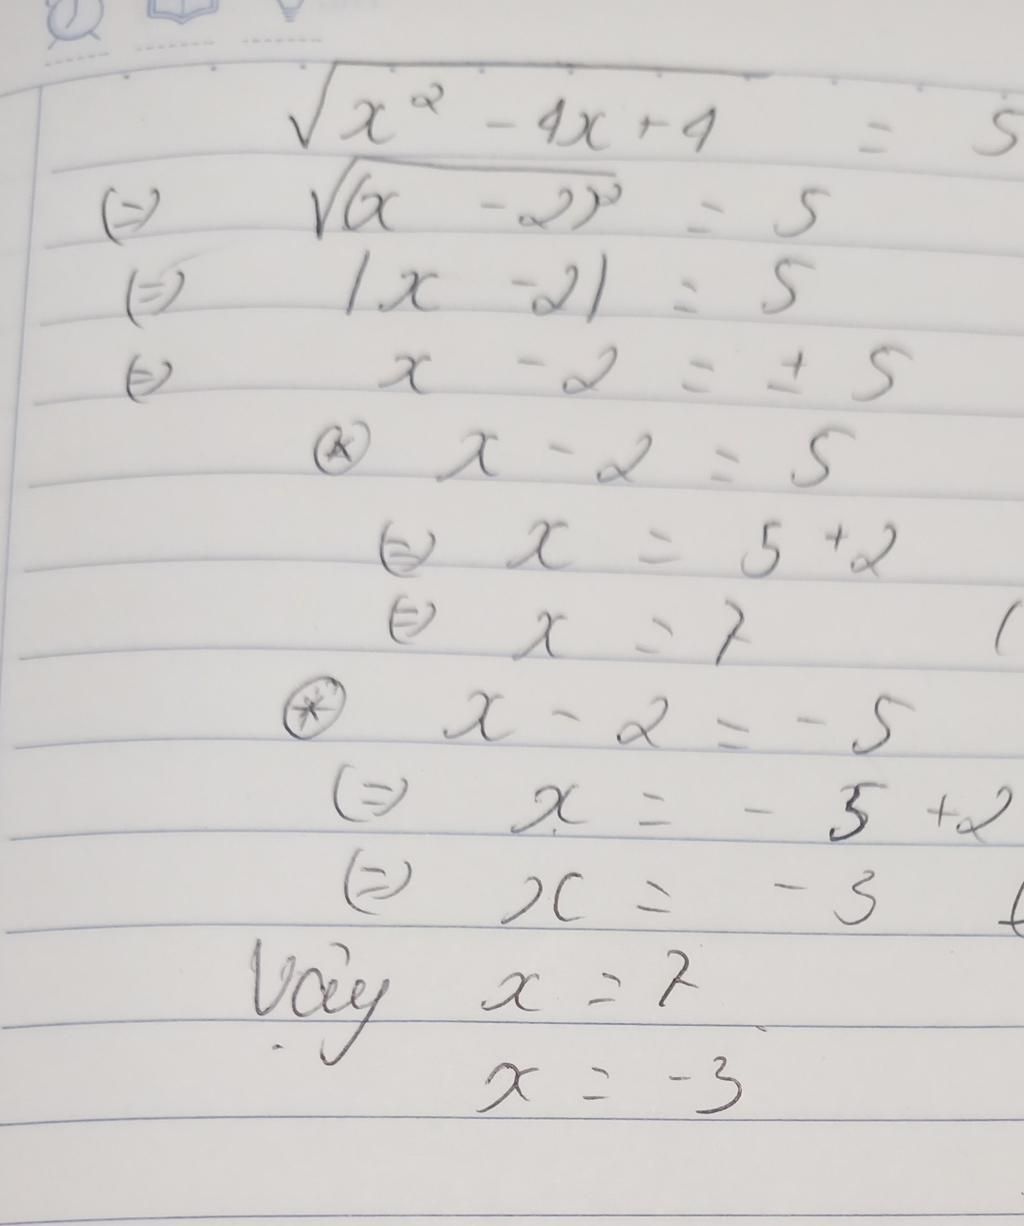 √(x² - 4x + 4) = 5
(=) √(x - 2)² = 5
(=) |x - 2| = 5
(=) x - 2 = ± 5
⊛ x - 2 = 5
(=) x = 5 + 2
(=) x = 7 (
⊛ x - 2 = - 5
(=) x = - 5 + 2
(=) x = - 3 (
Vậy x = 7
x = -3